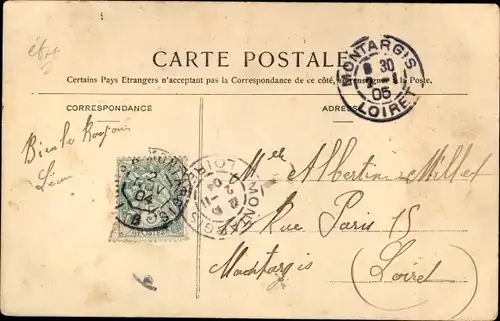 CARTE POSTALE
Certains Pays Etrangers n'acceptant pas la Correspondance de ce côté, se renseigner à la Poste.
CORRESPONDANCE
ADRESSE
MONTARGIS
8 30
05
LOIRET
Léon
Albertine Millet
Rue Paris 15
Montargis
(Loiret)
04